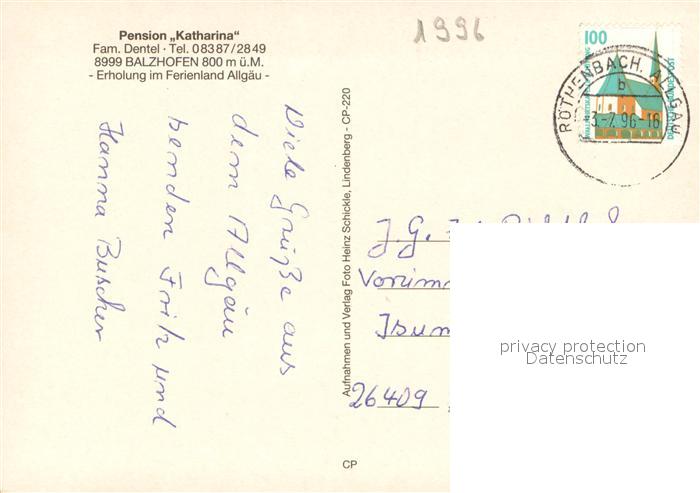 Pension „Katharina“
Fam. Dentel · Tel. 08387/2849
8999 BALZHOFEN 800 m ü.M.
- Erholung im Ferienland Allgäu -
1996
100
RÖTHENBACH, ALLGÄU
b
3.-7.96-16
Viele Grüße aus
dem Allgäu
senden Fritz und
Hanna Buscher
Aufnahmen und Verlag Foto Heinz Schickle, Lindenberg - CP-220
J. G.
26409
privacy protection
Datenschutz
CP